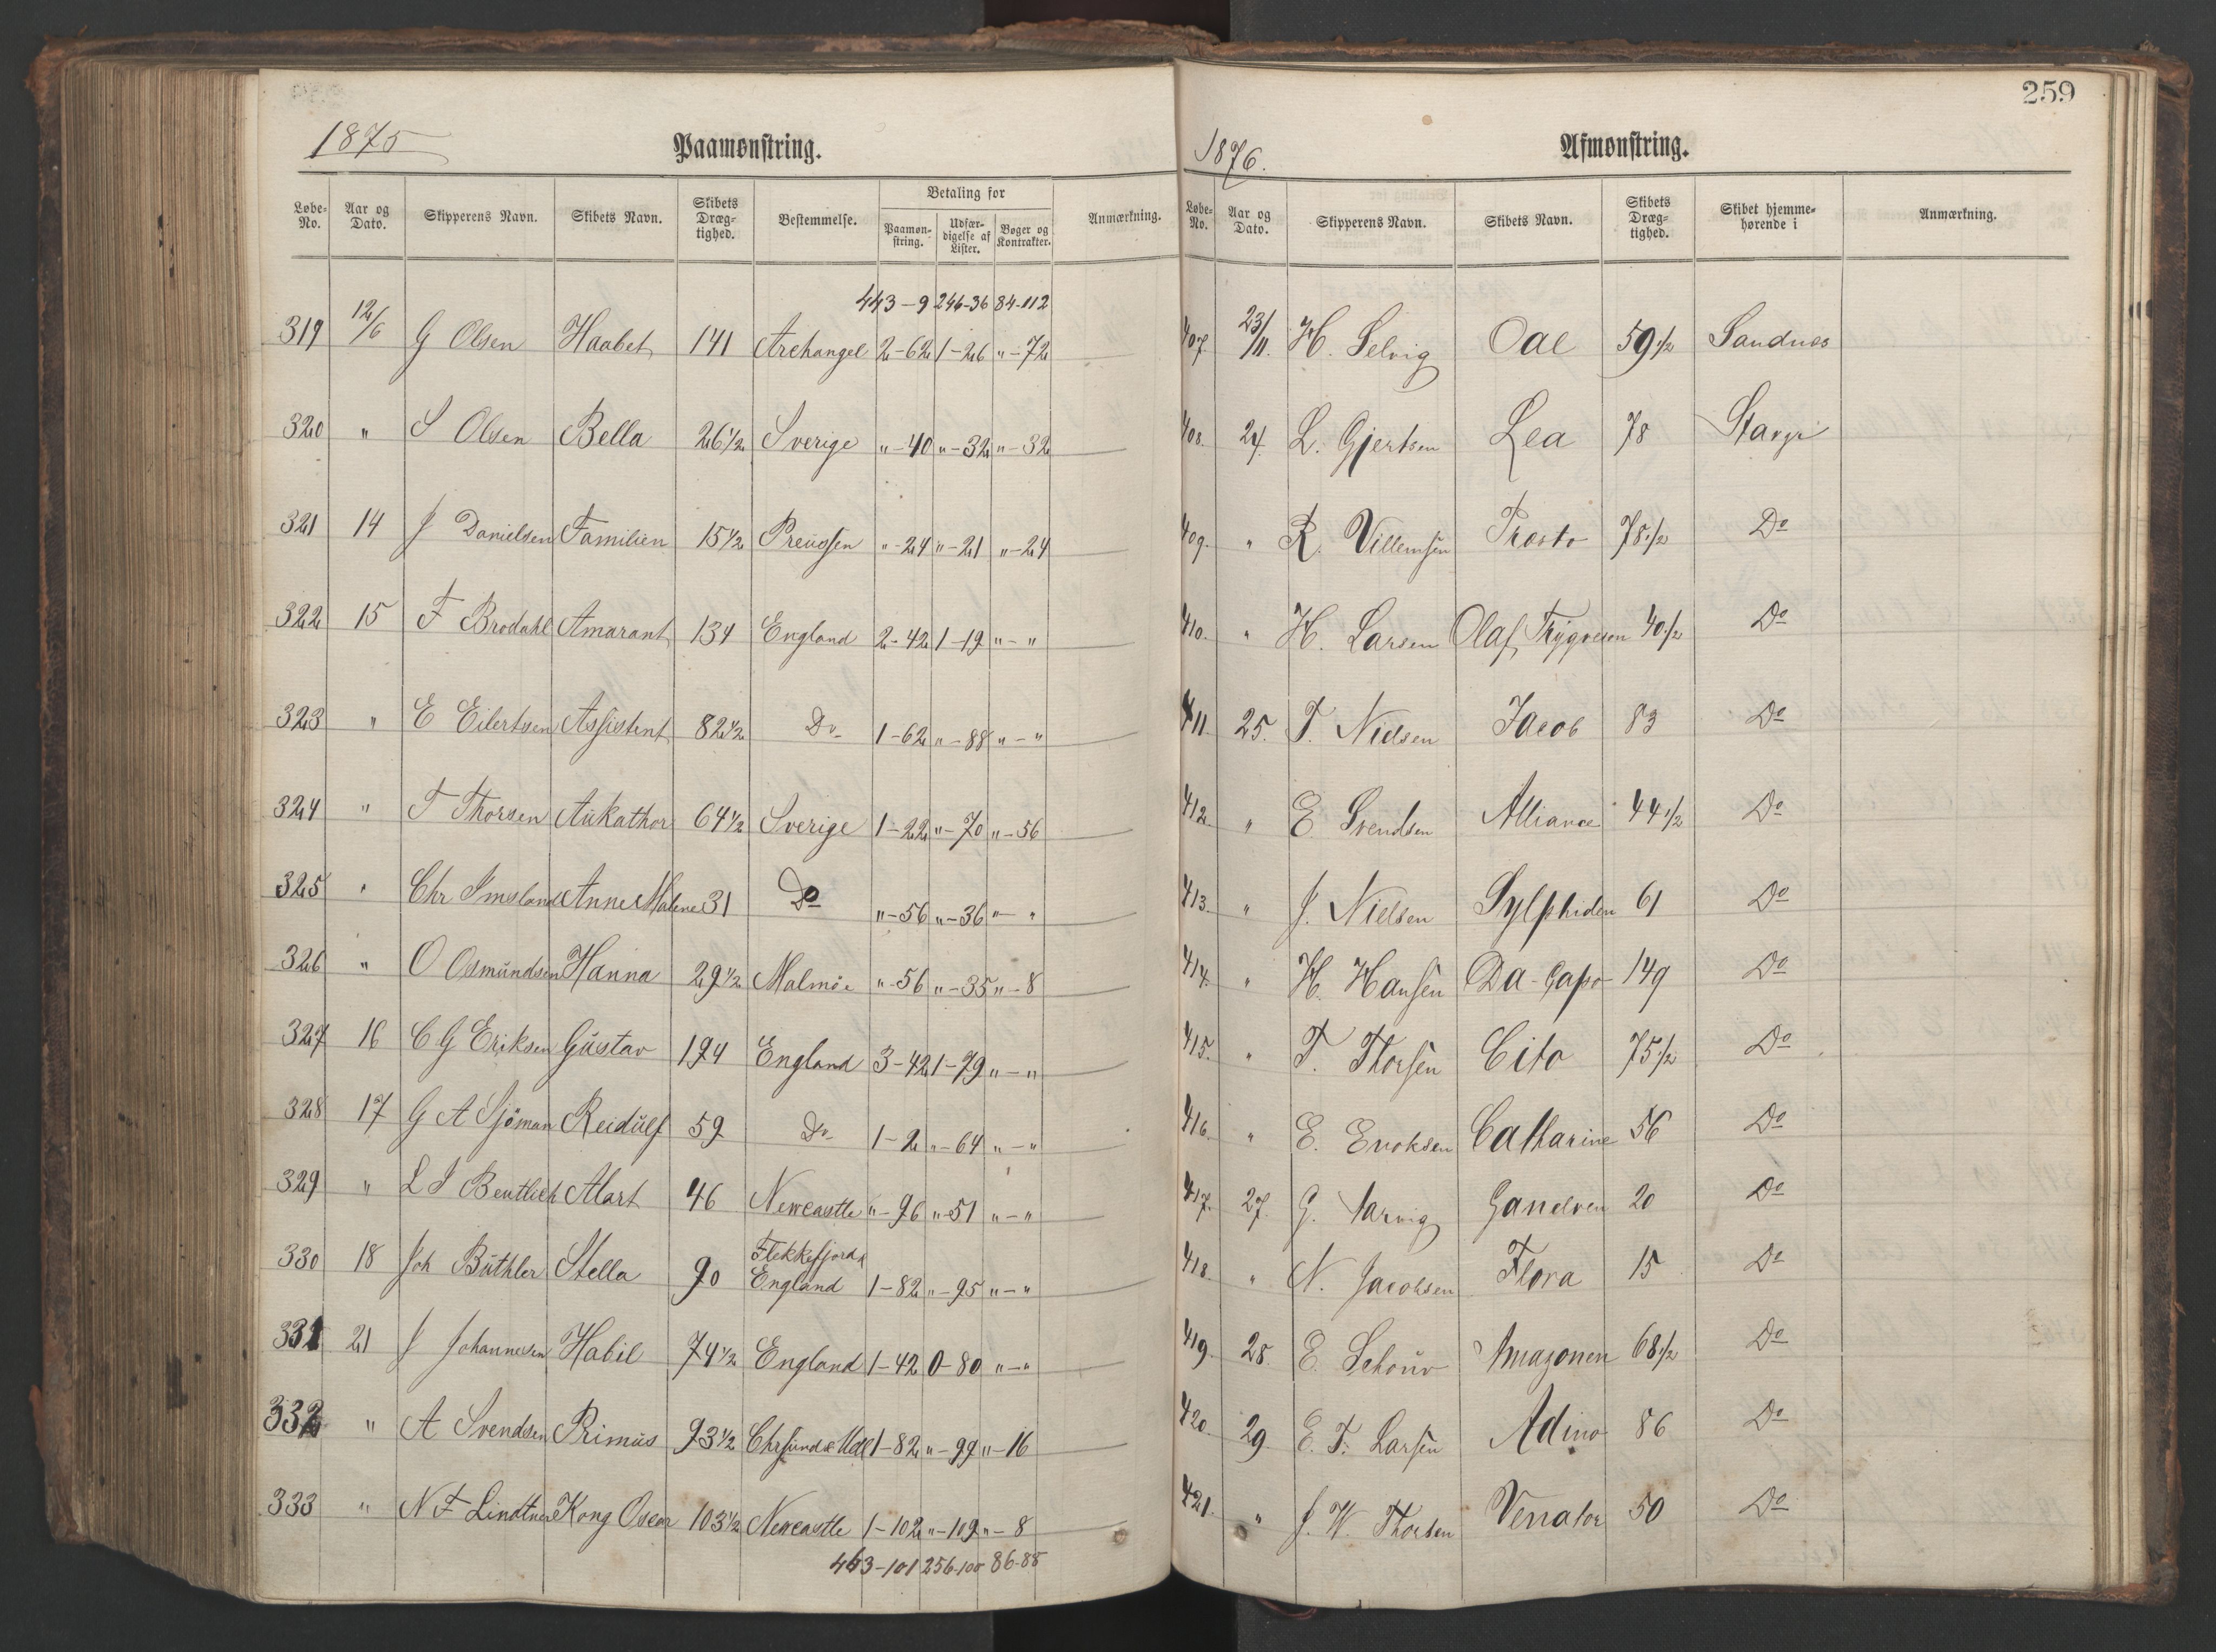 1875
Paamønstring.
Løbe-No. Aar og Dato. Skipperens Navn. Skibets Navn. Skibets Dræg-tighed. Bestemmelse. Betaling for Paamøn-string. Udfær-digelse af Lister. Bøger og Kontrakter. Anmærkning.
443-9 246-36 84-112
319 12/6 G Olsen Haabet 141 Archangel 2-62 1-26 "-72
320 " S Olsen Bella 26 1/2 Sverige "-40 "-32 "-32
321 14 J Danielsen Familien 15 1/2 Preussen "-24 "-21 "-24
322 15 F Brodahl Amarant 134 England 2-42 1-19 "-"
323 " E Eilertsen Assistent 82 1/2 Do 1-62 "-88 "-"
324 " T Thorsen Aukathor 64 1/2 Sverige 1-22 "-70 "-56
325 " Chr Imsland Anne Malene 31 Do "-56 "-36 "-"
326 " O Osmundsen Hanna 29 1/2 Malmöe "-56 "-35 "-8
327 16 C G Eriksen Gustav 194 England 3-42 1-79 "-"
328 17 G A Sjöman Reidulf 59 Do 1-2 "-64 "-"
329 " L I Bentlich Alart 46 Newcastle "-96 "-51 "-"
330 18 Joh Büthler Stella 90 Flekkefjord & England 1-82 "-95 "-"
331 21 J Johannesen Habil 74 1/2 England 1-42 0-80 "-"
332 " A Svendsen Primus 93 1/2 Chrsund & Udl 1-82 "-99 "-16
333 " N F Lindtner Kong Oscar 103 1/2 Newcastle 1-102 "-109 "-8
463-101 256-100 86-88
259
1876.
Afmønstring.
Løbe-No. Aar og Dato. Skipperens Navn. Skibets Navn. Skibets Dræg-tighed. Skibet hjemme-hørende i Anmærkning.
407. 23/11. H. Selvig Oal 59 1/2 Sandnes
408. 24. L. Gjertsen Lea 78 Stavgr
409. " R. Villemsen Presto 78 1/2 Do
410. " H. Larsen Olaf Trygvesen 40 1/2 Do
411. 25. T. Nielsen Jacob 83 Do
412. " E Svendsen Alliance 44 1/2 Do
413. " J. Nielsen Sylphiden 61 Do
414. " H. Hansen Da-Capo 149 Do
415. " T. Thorsen Cito 75 1/2 Do
416. " E. Enoksen Catharine 56 Do
417. 27. G. Narvig Gandven 20 Do
418. " N. Jacobsen Flora 15 Do
419. 28. E. Schouv Amazonen 68 1/2 Do
420. 29. E. T. Larsen Adino 86 Do
421. " J. W. Thorsen Venator 50 Do